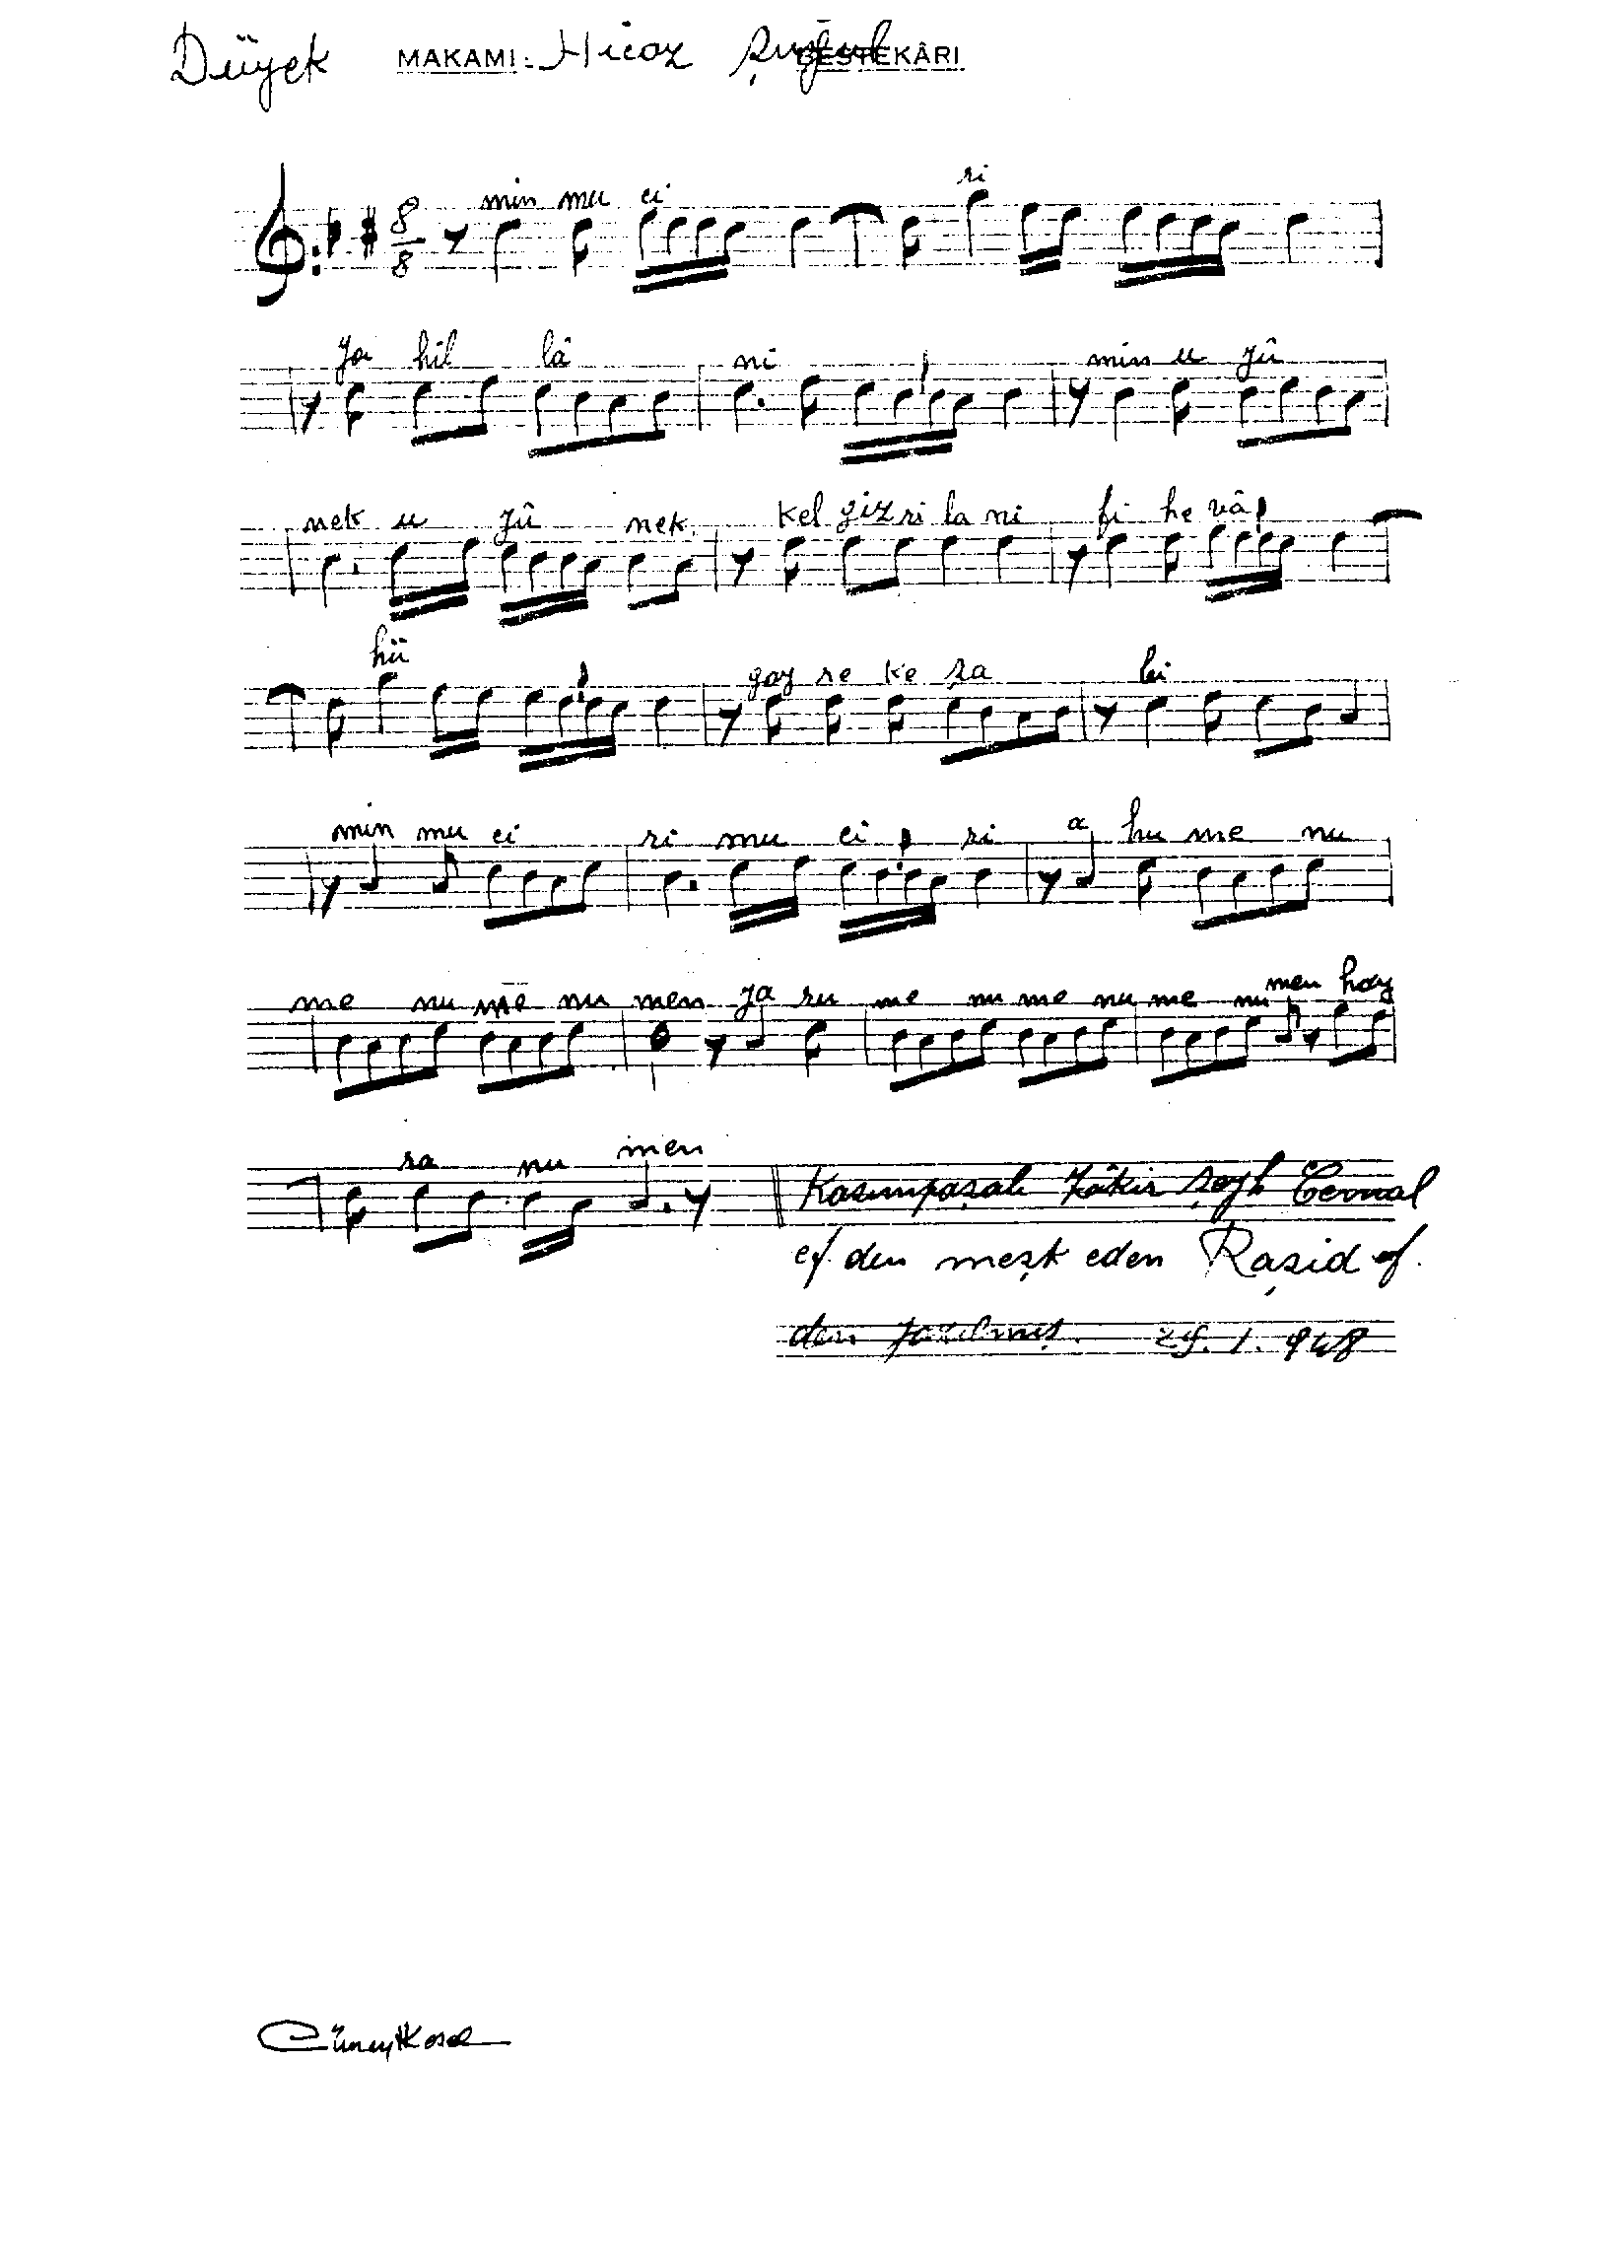 Düyek MAKAMI: Hicaz Şuğul BESTEKÂRI
8
8
min mu ci ri
ya hil lâ ni min u yû
nek u yû nek kel giz ri la ni fi he vâ
hü gay re ke şa lei
min mu ci ri mu ci ri a hu me nu
me nu me nu men ya ru me nu me nu me nu men hay
ra nu men
Kasımpaşalı Zâkir Şeyh Cemal
ef. den meşk eden Raşid ef.
den yazılmış. 1.948
Cüneyt Kosal